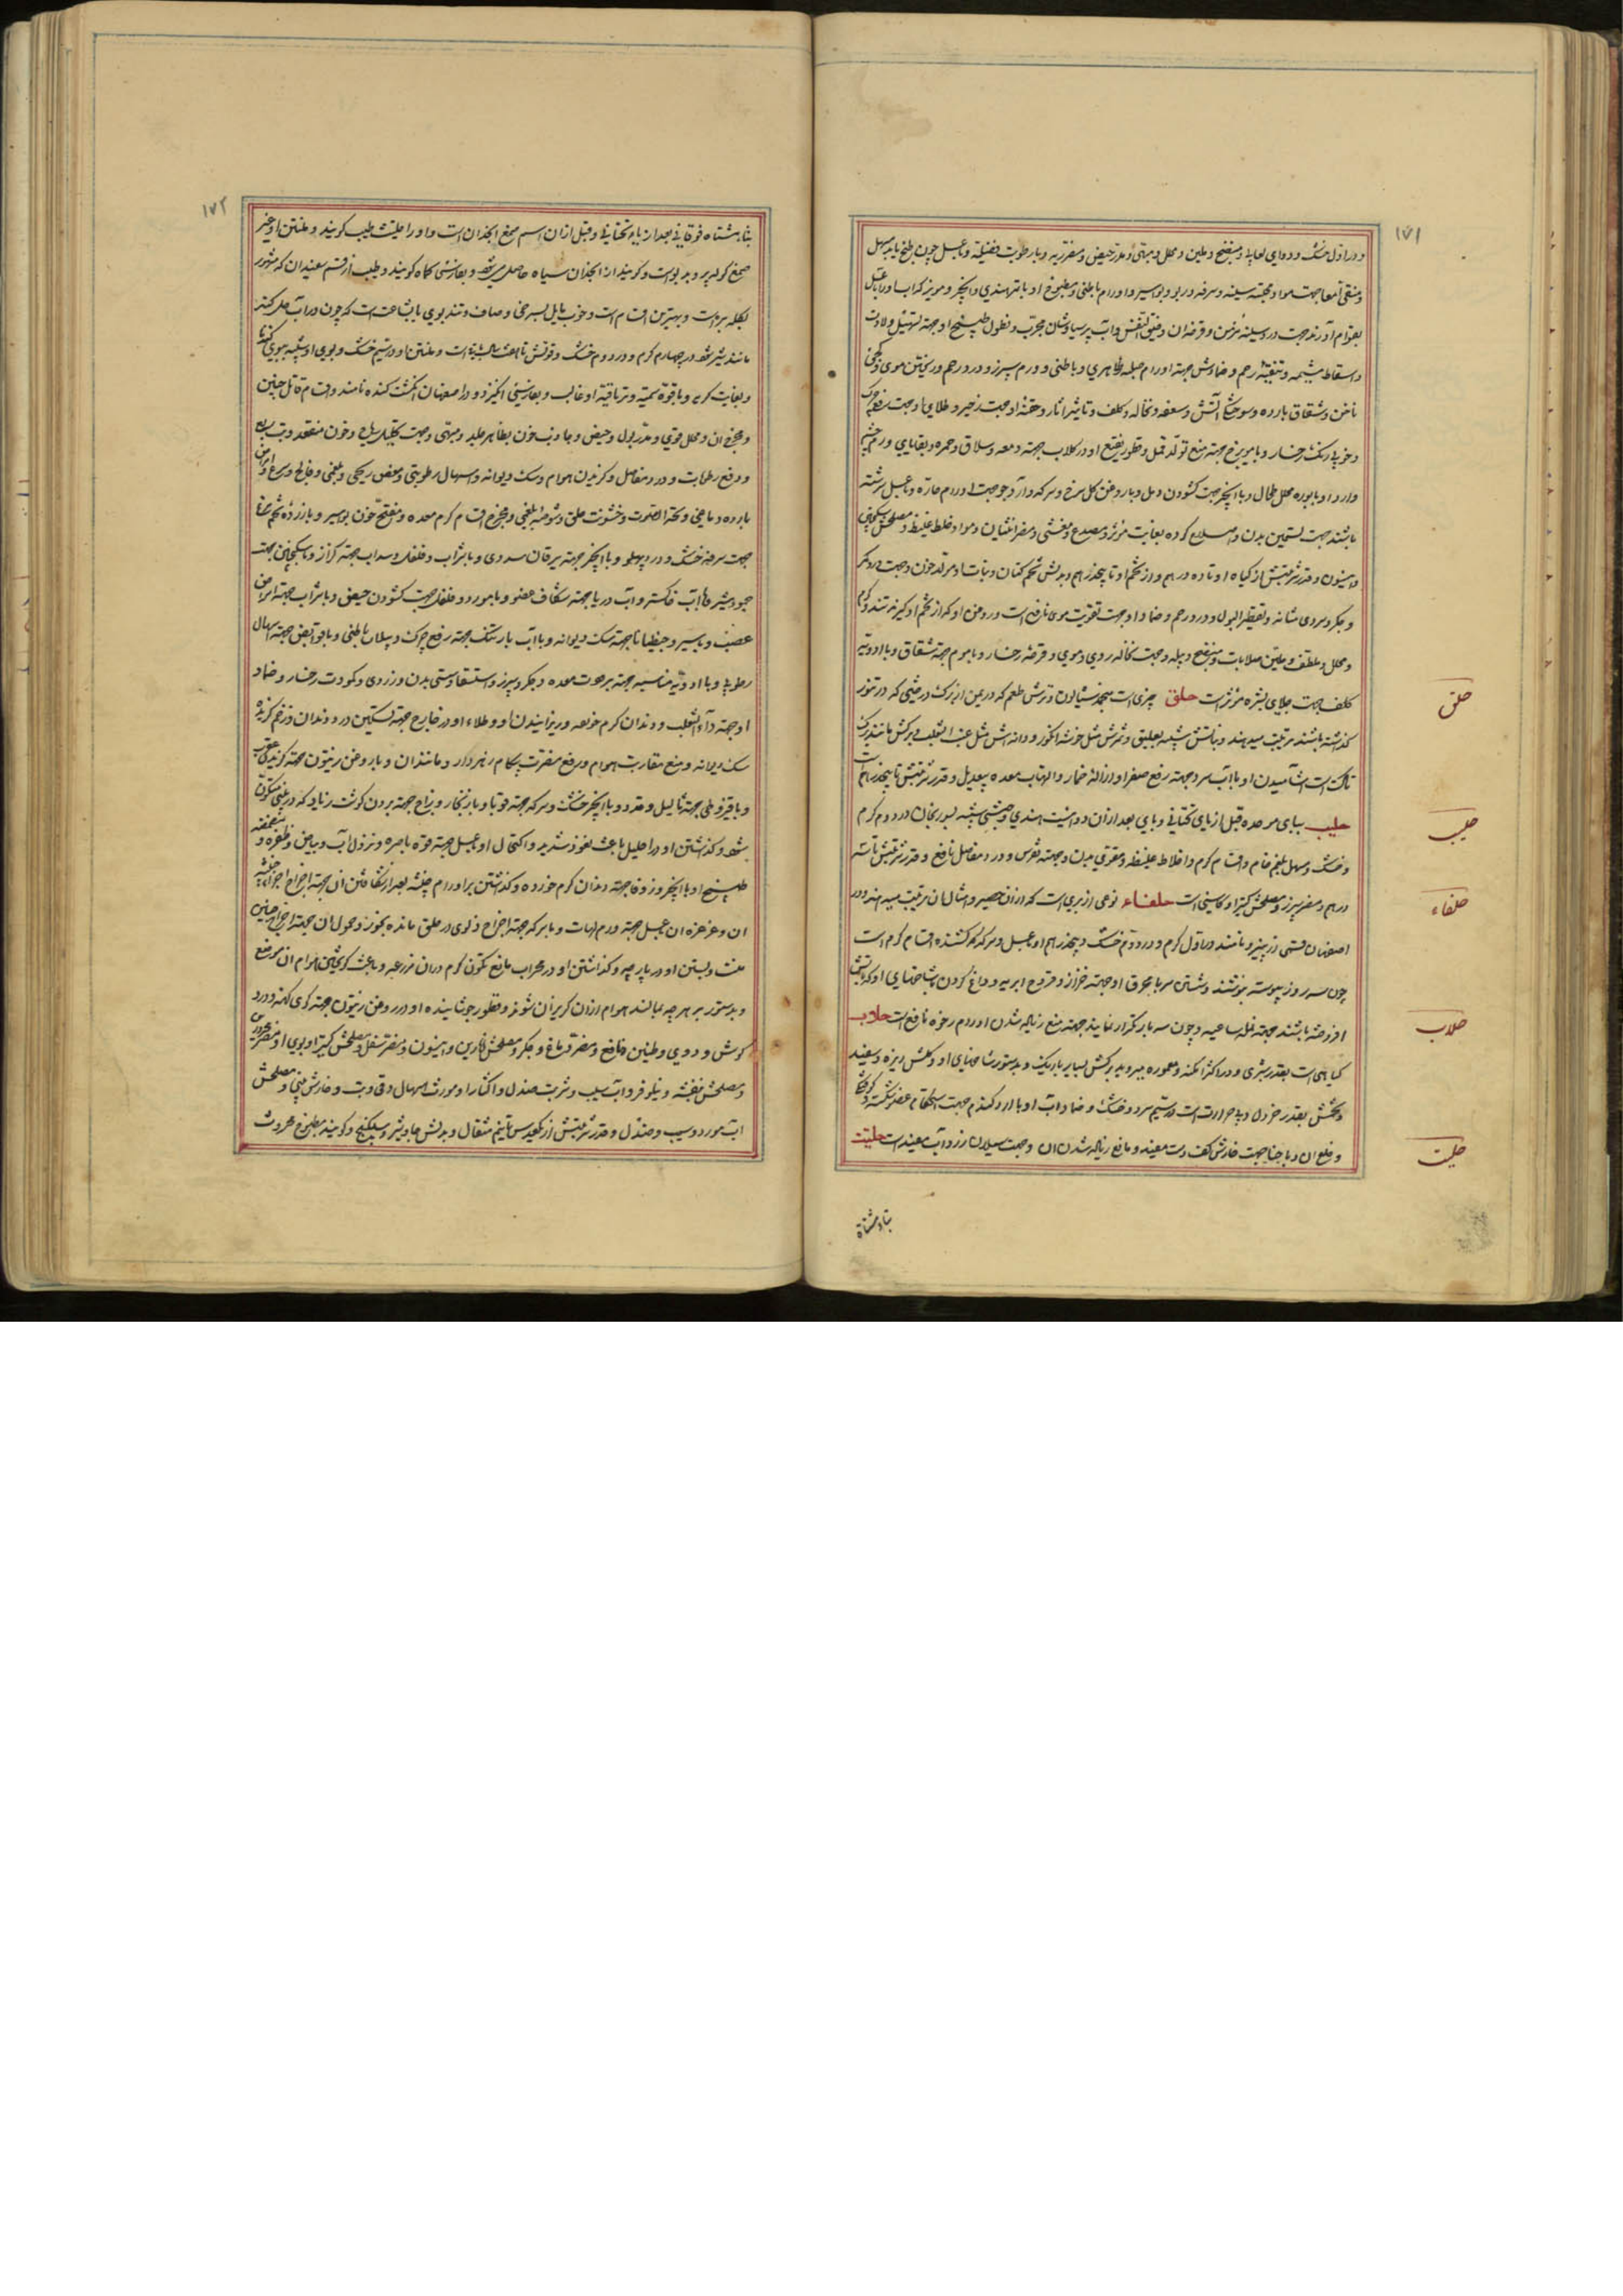 ۱۷۱
و در اول خشک و دوای لعابی و منضج و ملین و محلل و مبهی و مدر حیض و
و منقی امعا جهت مواد سینه و سرفه و ربو و بواسیر و اورام باطنی و مطبوخ او با تمر هندی و انجیر و مویز که آب او را با عسل
بقوام آورند جهت درد سینه مزمن و قرحه آن و ضیق النفس و آب پرسیاوشان مجرب و نطول طبیخ او جهت تسهیل ولادت
و اسقاط مشیمه و تنقیه رحم و ضمادش جهة اورام صلبه ظاهری و باطنی و ورم سپرز و درد رحم و ریختن موی و کجی
ناخن و شقاق بارده و سوختگی آتش و سعفه و نخاله و کلف و تأثیر آثار و حقنه او جهت زحیر و طلای او جهت
و خوبی رنگ رخسار و با مویزج جهة منع تولد قمل و قطور نقیع او در گلاب جهة دمعه و سلاق و حمره و بقایای ورم چشم
و آرد او با بوره محلل طحال و با انجیر جهت گشودن دمل و با روغن گل سرخ و سرکه و آرد جو جهت اورام حاره و با عسل سرشته
باشند جهت تسمین بدن و اصلاح گرده بغایت مؤثر و مصدع و مغثی و مضر انثیان و مولد خلط غلیظ و مصلحش سکنجبین
و انیسون و قدر شربتش از گیاه او تا ده درهم و از تخم او تا پنجدرهم و بدلش تخم کتان و نبات او مولد خون و جهت درد کمر
و جگر و سردی مثانه و تقطیر البول و درد رحم و ضماد او جهت تقویت موی نافع است و روغن او که از تخم او گیرند تند و گرم
و محلل و ملطف و ملین صلابات و منضج دبیله و جهت نخاله روی و موی و قرحه رخسار و با موم جهة شقاق و با ادویه
کلف جهت جلای بشره مؤثر است حلق چیزی است منجمد سیاه لون و ترش طعم که در یمن از برگ درختی که در تنور
گذاشته باشند ترتیب میدهند و نباتش شبیه بعلیق و ثمرش مثل خوشه انگور و دانه اش مثل عنب الثعلب و برگش مانند برگ
تاک است آشامیدن او با آب سرد جهة رفع صفرا و ازاله خمار و التهاب معده بیعدیل و قدر شربتش تا پنجدرهم است
حلیب ببای موحده قبل از یای تحتانی و یای بعد از آن دوائیست هندی و حبشی شبیه بسورنجان در دوم گرم
و خشک و مسهل بلغم خام و اقسام کرم و اخلاط غلیظه و مقوی بدن و جهة نقرس و درد مفاصل نافع و قدر شربتش تا سه
درهم و مضر سپرز و مصلحش کتیرا و کاسنی است حلفاء نوعی از بردی است که از آن حصیر و امثال آن ترتیب میدهند و در
اصفهان قسمی از پیزر نامند در اول گرم و در دوم خشک و پنجدرهم او با عسل و سرکه کشنده اقسام کرم است
چون سه روز پیوسته بنوشند و شستن سر با محرق او جهة حزاز و قروح ابریه و داغ کردن بشاخهای او که بآتش
افروخته باشند جهة نمله ساعیه و چون سه بار تکرار نمایند جهة منع زیاده شدن اورام رخوه نافع است حلاب
گیاهی است بقدر شبری و در اکثر امکنه معموره میروید برگش بسیار باریک و بدستور شاخهای او و گلش ریزه و سفید
و تخمش بقدر خردل و با حرارت است در سیم سرد و خشک و ضماد آب او با آرد گندم جهت استحکام عضو شکسته و کوفتگی
و خلع آن و با حنا جهت خارش کف دست مفید و مانع زیاده شدن آن و جهت سیلان زرد آب مفید است حلتیت
حلق
حلیب
حلفاء
حلاب
حلتیت
بتاء مثناة
۱۷۲
بتا مثناه فوقانی بعد از یاء تحتانی و قبل از آن اسم صمغ انجدان است و او را حلتیت طیب گویند و منتن او غیر
صمغ کوله پر و بدبو است و گویند از انجدان سیاه حاصل میشود و بفارسی کماه گویند و طیب از قسم سفید آن که مشهور
بکله بره است و بهترین اقسام است و خوب مایل بسرخی و صاف و تندبوی با بشاعت است که چون در آب حل کنند
مانند شیر شود در چهارم گرم و در دوم خشک و قوتش تا هفت سال باقیست و منتن او در سیم خشک و بوی او شبیه ببوی گندنا
و بغایت کریه و با قوة سمیه و تریاقیة او غالب و بفارسی انگیزد و در اصفهان انگشت گنده نامند و اقسام قاتل جنین
و مخرج آن و محلل قوی و مدر بول و حیض و جاذب خون بظاهر جلد و مبهی و جهت تحلیل ریاح و خون منعقد و تب ربع
و دفع رطوبات و درد مفاصل و گزیدن هوام و سگ دیوانه و اسهال رطوبتی و مغص ریحی و بلغمی و فالج و صرع و امراض
بارده دماغی و بحة الصوت و خشونت حلق و شوصه بلغمی و مخرج اقسام کرم معده و مفتح خون بواسیر و با زرده تخم مرغ
جهت سرفه خشک و درد پهلو و با انجیر جهة یرقان سددی و با شراب و فلفل و سداب جهة کزاز و با سکنجبین جهت
جمود شیر و با آب خاکستر و آب دریا جهة شکاف عضو و با مورد و فلفل جهت گشودن حیض و با شراب جهة امراض
عصب و بواسیر و جنطیانا جهة سگ دیوانه و با آب بارتنگ جهة رفع چرک و سیلان باطنی و با قوابض جهة اسهال
رطوبی و با ادویه مناسبه جهة برودت معده و جگر و سپرز و استسقا و سستی بدن و زردی و کمودت رخسار و ضماد
او جهة داء الثعلب و دندان کرم خورده و ریزانیدن او و طلاء او در خارج جهة تسکین درد دندان و زخم گزیده
سگ دیوانه و منع مقاربت هوام و رفع مضرت پیکان زهردار و مانند آن و با روغن زیتون جهة گزیدگی عقرب
و با قیروطی جهة ثآلیل و غدد و با انجیر خشک و سرکه جهة قوبا و با زنگار و زاج جهة بردن گوشت زیاد که در بینی متکون
شود و گذاشتن او در احلیل باعث نعوظ شدید و اکتحال او با عسل جهة قوة باصره و نزول آب و بیاض و ظفره و
طبیخ او با انجیر و زوفا جهة دندان کرم خورده و گذاشتن بر اورام خبیثه بعد از شکافتن آن جهة اخراج اجزاء خبیثه
آن و غرغره آن با عسل جهة ورم لهات و با سرکه جهة اخراج زلوی در حلق مانده و بخور و حمول آن جهة اخراج جنین
میت و بستن او در پارچه و گذاشتن او در مجراب مانع تکون کرم در آن مزرعه و باعث گریختن هوام آن موضع
و بدستور بر هر چه بمالند هوام از آن گریزان شوند و قطور جوشانیده او در روغن زیتون جهة کری کهنه و درد
گوش و دوی و طنین نافع و مضر دماغ و جگر و مصلحش انارین و انیسون و مضر سفل و مصلحش کتیرا و بوی او مضر محرورین
و مصلحش بنفشه و نیلوفر و آب سیب و شربت صندل و اکثار او مورث اسهال و قی و تب و خارش بینی و مصلحش
آب مورد و سیب و صندل و قدر شربتش از یکعدس تا نیم مثقال و بدلش جاوشیر و سکبینج و گویند مطبوخ محروث